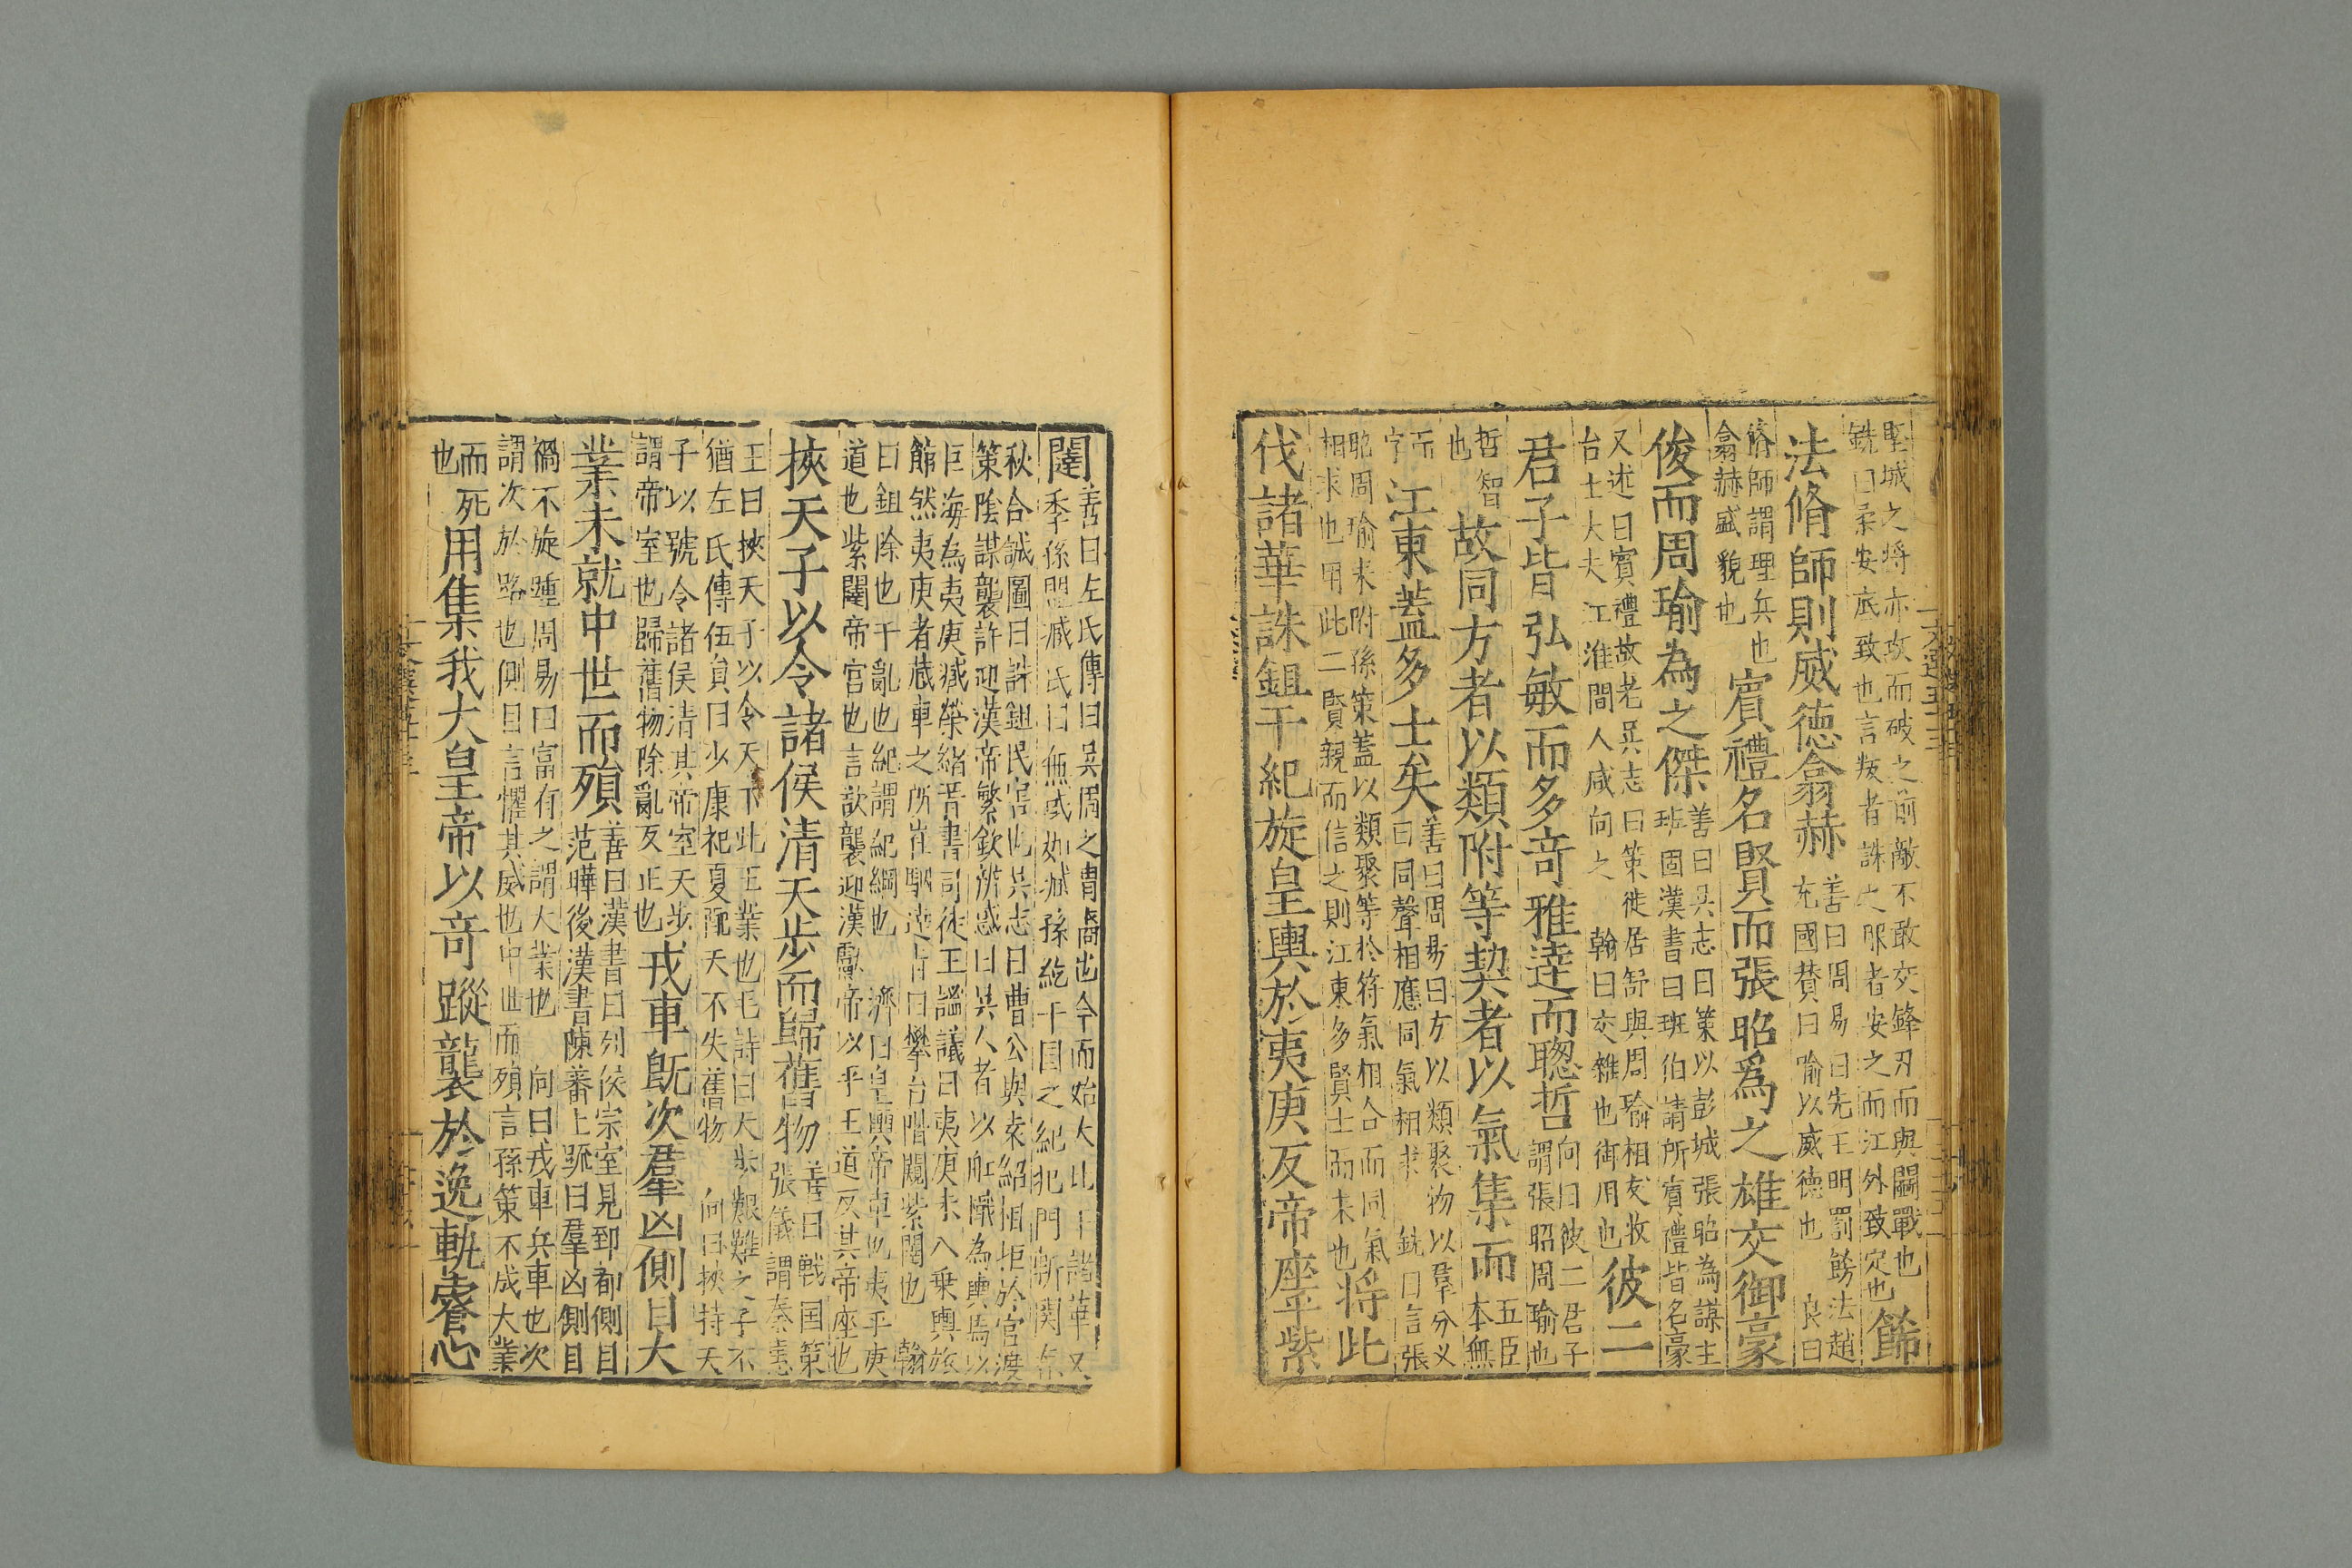 堅城之將亦攻而破之前敵不敢交鋒刃而與鬬戰也
銑曰柔安底致也言叛者誅之服者安之而江外致定也
飾
法脩師則威德翕赫
善曰周易曰先王明罰飭法趙
充國賛曰喻以威德也 良曰
脩師謂理兵也
翕赫盛貌也
賓禮名賢而張昭爲之雄交御豪
俊而周瑜為之傑
善曰吳志曰策以彭城張昭為謀主
班固漢書曰班伯請所賓禮皆名豪
又述曰賓禮故老吳志曰策徙居舒與周瑜相友收
合士大夫江淮間人咸向之 翰曰交雜也御用也
彼二
君子皆弘敏而多奇雅達而聰哲
向曰彼二君子
謂張昭周瑜也
五臣
本無
哲智
也
故同方者以類附等契者以氣集而
而
字
江東蓋多士矣
善曰周易曰方以類聚物以羣分又
曰同聲相應同氣相求 銑曰言張
昭周瑜來附孫策蓋以類聚等於符氣相合而同氣
相求也用此二賢親而信之則江東多賢士而來也
將此
伐諸華誅鉏干紀旋皇輿於夷庚反帝座乎紫
闥
善曰左氏傳曰吳周之胄裔也今而始大比于諸華又
季孫盟臧氏曰無或如臧孫紇干國之紀犯門斬關春
秋合誠圖曰誅鉏民害也吳志曰曹公與袁紹相拒於官渡
策陰謀襲許迎漢帝繁欽辨惑曰吳人者以船檝為輿馬以
巨海為夷庚臧榮緒晉書司徒王謐議曰夷庚未入乗輿旅
館然夷庚者藏車之所 曰攀台階闚紫闥也 翰
曰鉏除也干亂也紀謂紀綱也 濟曰皇輿帝車也夷平庚
道也紫闥帝宫也言欲襲迎漢獻帝以平王道反其帝座也
挾天子以令諸侯清天步而歸舊物
善曰戰国策
張儀謂秦惠
王曰挾天子以令天下此王業也毛詩曰天步艱難之子不
猶左氏傳伍員曰少康祀夏配天不失舊物 向曰挾持天
子以號令諸侯清其帝室天步
謂帝室也歸舊物除亂反正也
戎車旣次羣凶側目大
業未就中世而殞
善曰漢書曰列侯宗室見郅都側目
范曄後漢書陳蕃上䟽曰羣凶側目
禍不旋踵周易曰富有之謂大業也 向曰戎車兵車也次
謂次於路也側目言懼其威也中世而殞言孫策不成大業
而死
也
用集我大皇帝以奇蹤襲於逸軌叡心